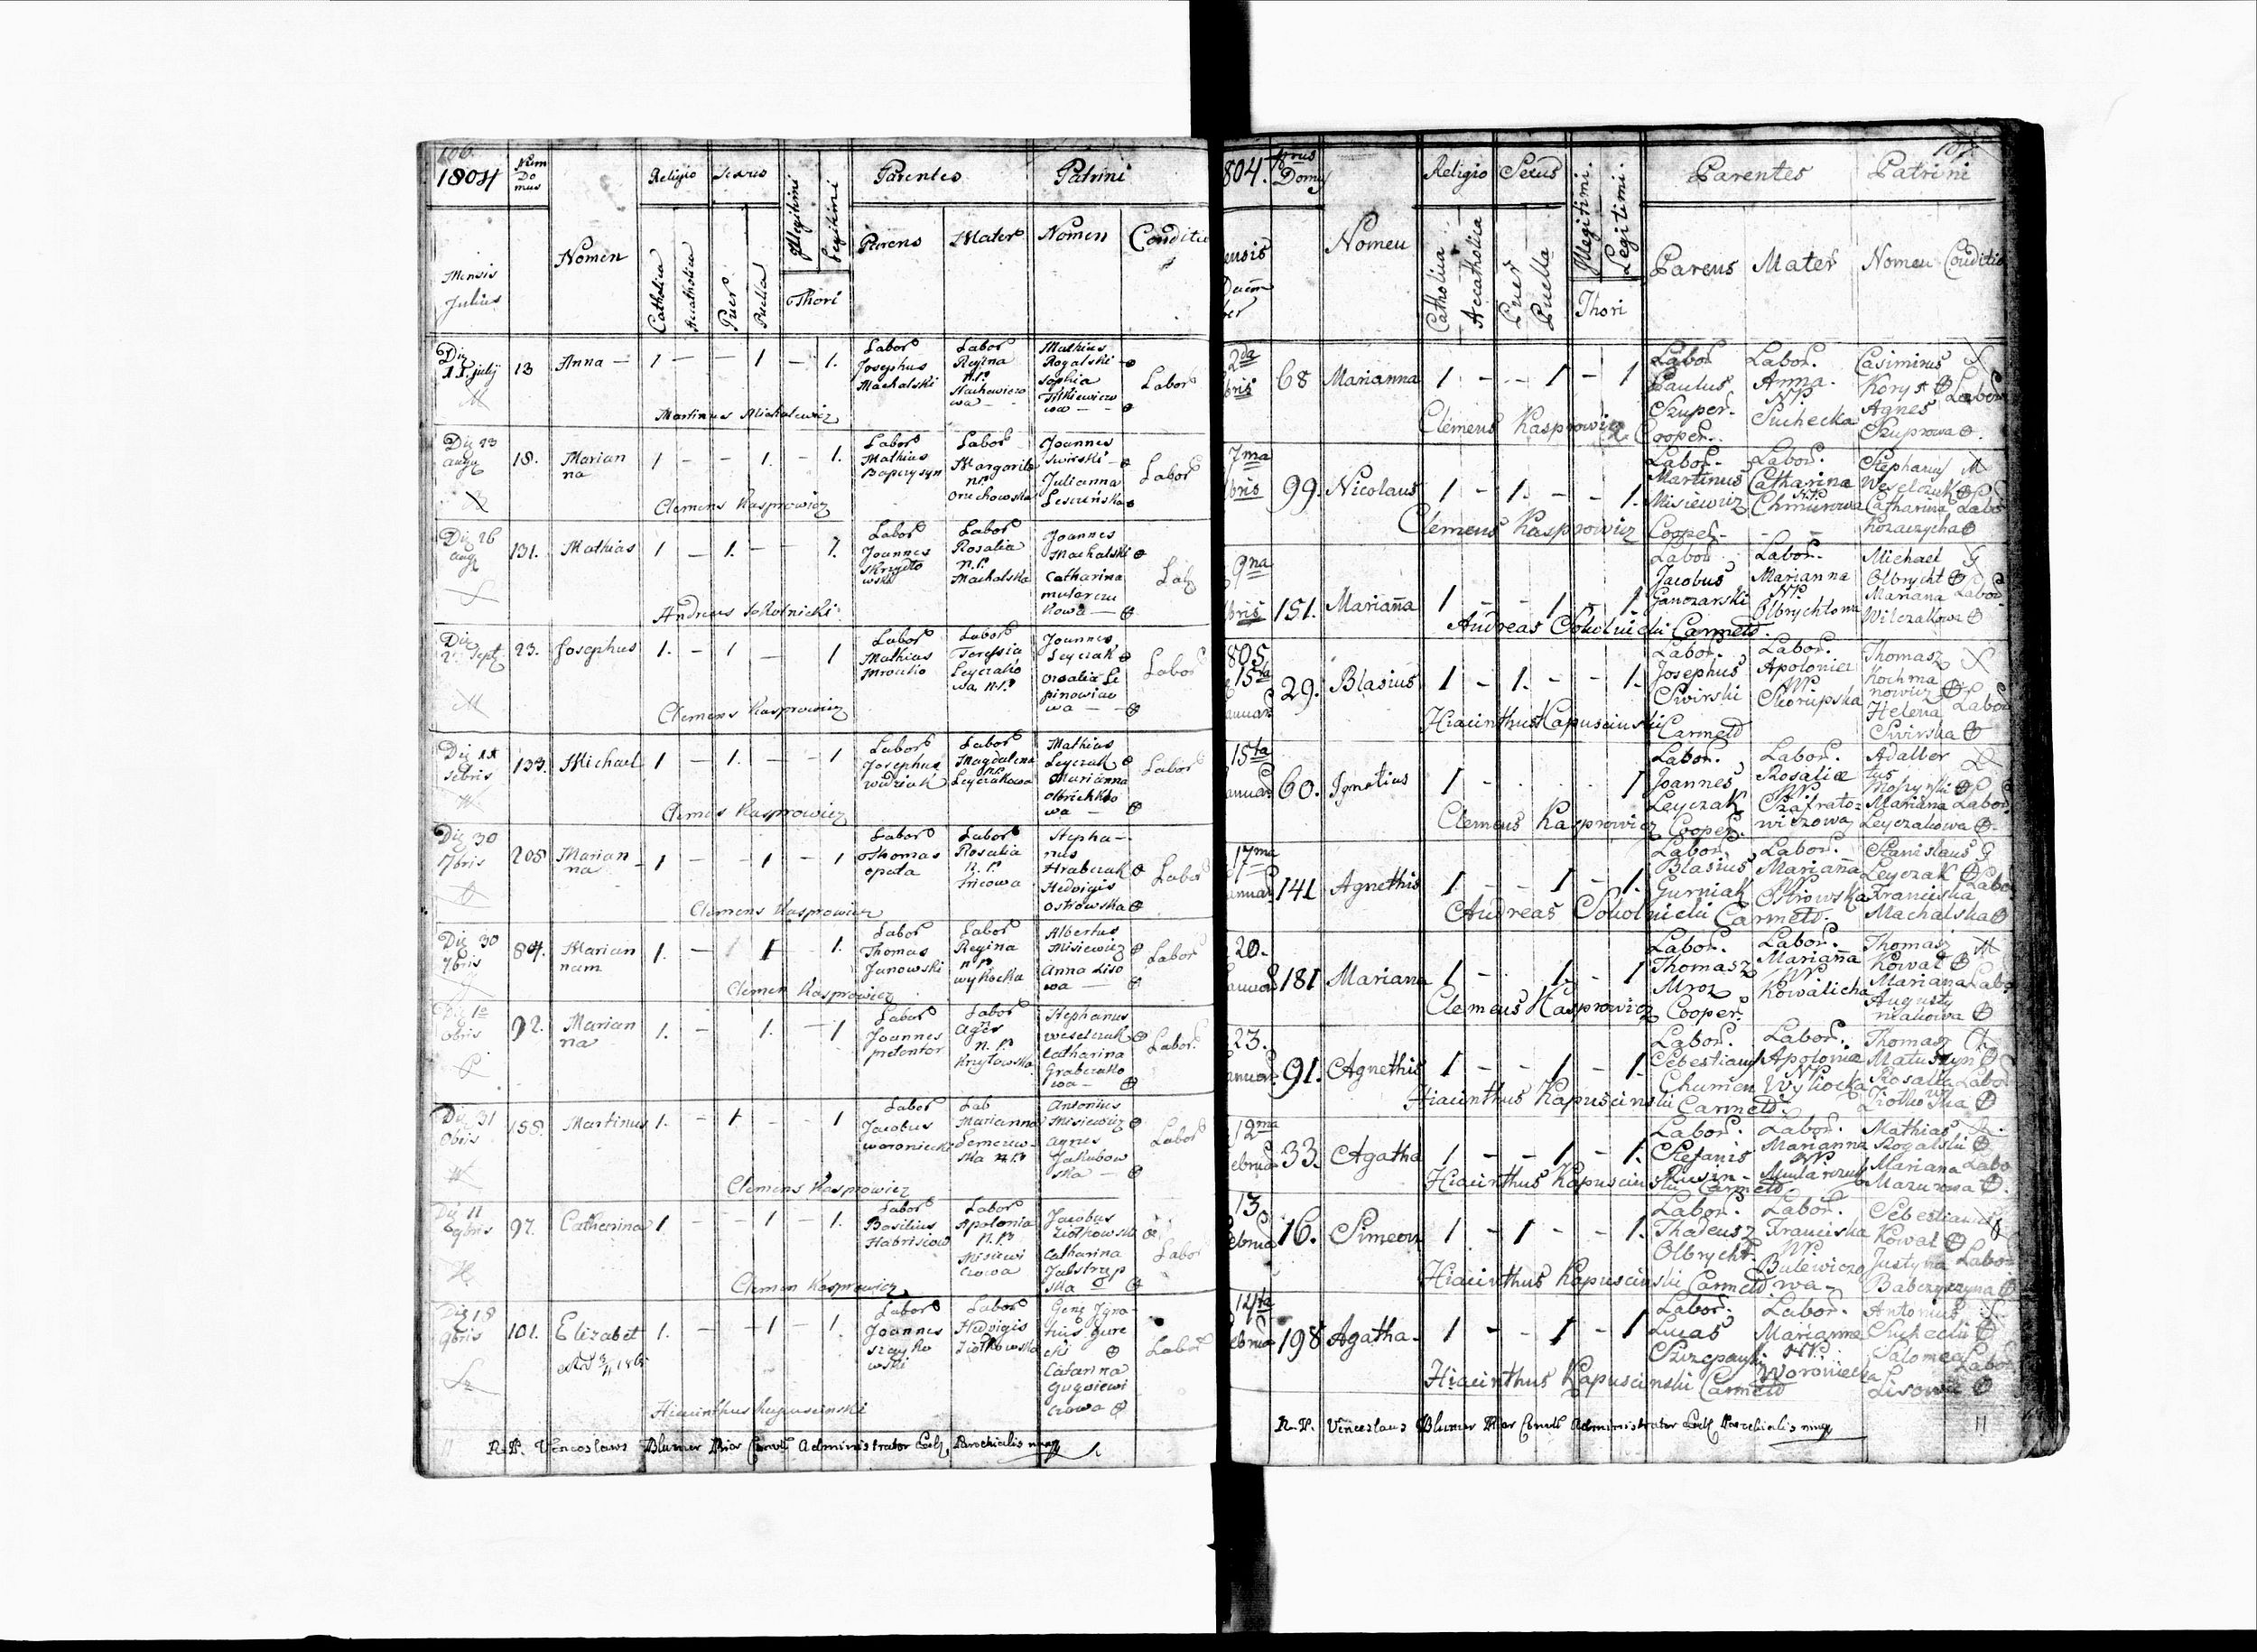 106.
1804
Num
Do
mus
Religio
Sexus
Illegitimi
Legitimi
Parentes
Patrini
Mensis
Julius
Nomen
Catholica
Accatholica
Puer
Puella
Thori
Parens
Mater
Nomen
Conditio
Die
11 july
13
Anna —
1 — — 1 — 1.
Labor
Josephus
Machalski
Labor
Regina
n.P.
Stachowiczo
wa —
Mathias
Rogalski
Sophia
wa — —
Labor
Martinus Michalewicz
Die 23
augu
18.
Marian
na
1 — — 1. — 1.
Labor
Mathias
Labor
Margarita
n.P.
Orzchowska
Joannes
Swirski —
Julianna
Labor
Clemens Kasprowicz
Die 26
aug
131.
Mathias
1 — 1. — — 1.
Labor
Joannes
Skrzydło
wski
Labor
Rosalia
n.P.
Machalska
Joannes
Machalski
Catharina
mularczu
kowa —
Lab
Andreas Sokolnicki
Die
Sept
23.
Josephus
1. — 1 — 1
Labor
Mathias
Labor
Teressia
Leyczako
wa n.P.
Joannes
Leyczak
wa — —
Labor
Clemens Kasprowicz
Die 11
133.
Michael
1 — 1. — — 1
Labor
Josephus
Labor
Magdalena
n.P.
Leyczakowa
Mathias
Leyczak
Marianna
wa —
Labor
Clemens Kasprowicz
Die 30
7bris
205
Marian
na
1 — — 1 — 1
Labor
Thomas
opala
Labor
Rosalia
n.P.
Stepha—
nus
Hrabczak
Hedvigis
Ostrowska
Labor
Clemens Kasprowicz
Die 30
7bris
84.
Marian
nam
1. — 1 — 1.
Labor
Thomas
Janowski
Labor
Regina
n.P.
wykocka
Albertus
Misiewicz
Anna Liso
wa —
Labor
Clemen Kasprowicz
92.
Marian
na
1. — 1. — 1
Labor
Joannes
pretentor
Labor
Agnes
n.P.
Stephanus
weselczuk
Catharina
Grabczako
wa —
Labor
Die 31
155.
Martinus
1. — 1 — 1
Labor
Jacobus
woroniecki
Lab
Marianna
ska n.P.
Antonius
Misiewicz
Agnes
Jakubow
ska —
Labor
Clemens Kasprowicz
Die 11
9bris
97.
Catherina
1 — — 1 — 1.
Labor
Basilius
Labor
Apolonia
n.P.
Misiewi
czowa
Jacobus
Ziolkowski
Catharina
Jastrzep
ska
Labor
Clemen Kasprowicz
Die 18
9bris
101.
Elizabet
1. — — 1 — 1.
Labor
Joannes
szayko
wski
Labor
Hedvigis
Ziołkowska
Igna
tius
Catarina
Labor
Hiacinthus Kapuscinski
R. P. Venceslaus Blumer Prior Convt Administrator Eccl Parochialis mmpp
11
804.
Nrus
Domy
107.
Religio
Sexus
Illegitimi.
Legitimi.
Parentes
Patrini
ensis
Decem
ber
Nomen
Catholica
Accatholica
Puer
Puella
Thori
Parens
Mater
Nomen
Conditio
2da
bris
68
Marianna
1 - - 1 - 1
Labor
Paulus
Szuper.
Labor.
Anna.
NP.
Suchecka
Casimirus
Agnes
Szuprowa
Labor
Clemens Kasprowicz Cooper.
7ma
bris
99.
Nicolaus
1 - 1. - - 1.
Labor.
Martinus
Misiewicz
Labor.
Catharina
NP.
Chmurowa
Stephanus
Weselczuk
Catharina
Kozaczycha
Labo
Clemens Kasprowicz Cooper.
9na
bris
151.
Mariana
1 - - 1 - 1.
Labor
Jacobus
Ganczarski
Labor.
Marianna
NP.
Olbrychtowa
Michael
Olbrycht
Mariana
Wilczakowa
Labor
Andreas Sokolnicki Carmeld.
805
15ta
anuar
29.
Blasius
1 - 1. - - 1.
Labor.
Josephus
Swirski
Labor.
Apolonia
NP
Skorupska
Thomasz
Kochma
nowicz
Helena
Swirska
Labor
Hiacinthus Kapuscinski Carmeld
15ta
anuar
60.
Ignatius
1 - . . . 1
Labor.
Joannes
Leyczak
Labor.
Rosaliæ
NP
Szafrato=
wiszowa
Adalber
tus
Mariana
Leyczakowa
Labor
Clemens Kasprowicz Cooper.
17ma
anuar
141
Agnethis
1 - - 1 - 1.
Labor.
Blasius
Gurniak
Labor.
Mariana
NP.
Stanislaus
Leyczak
Franciska
Machalska
Labo
Andreas Sokolnicki Carmeld.
20.
anuar
181
Mariana
1 - . 1. - 1
Labor.
Thomasz
Mroz
Labor.
Mariana
NP.
Kowalicha
Thomasz
Kowal
Mariana
Augusty
niakowa
Labo
Clemens Kasprowicz Cooper.
23.
anuar
91.
Agnethis
1 - - 1 - 1.
Labor.
Sebestianus
Labor.
Apolonia
NP
Wykocka
Thomasz
Matuszyn
Rosalia
Labor
Hiacinthus Kapuscinski Carmeld.
12ma
ebrua
33.
Agatha
1 - - 1 - 1.
Labor.
Stefanis
Rusin-
Labor.
Marianna
NP
Mularczuk
Mathias
Rogalski
Mariana
Mazurowa
Labo
Hiacinthus Kapuscinski Carmeld
13.
ebrua
16.
Simeon
1 - 1 - 1.
Labor.
Thadeusz
Olbrycht.
Labor.
Franciska
NP.
Bulewiczo
wa-
Sebestian
Kowal
Justyna
Labor
Hiacinthus Kapuscinski Carmeld.
14ta
ebrua
198
Agatha.
1 - - 1 - 1
Labor.
Lucas
Szczepanski
Labor.
Marianna
NP.
Woroniecka
Antonius
Suchecki
Salomea
Lisowa
Labor
Hiacinthus Kapuscinski Carmeld
R. P. Venceslaus Blumer Prior Convt Administrator Eccl Parochialis mmpp
11